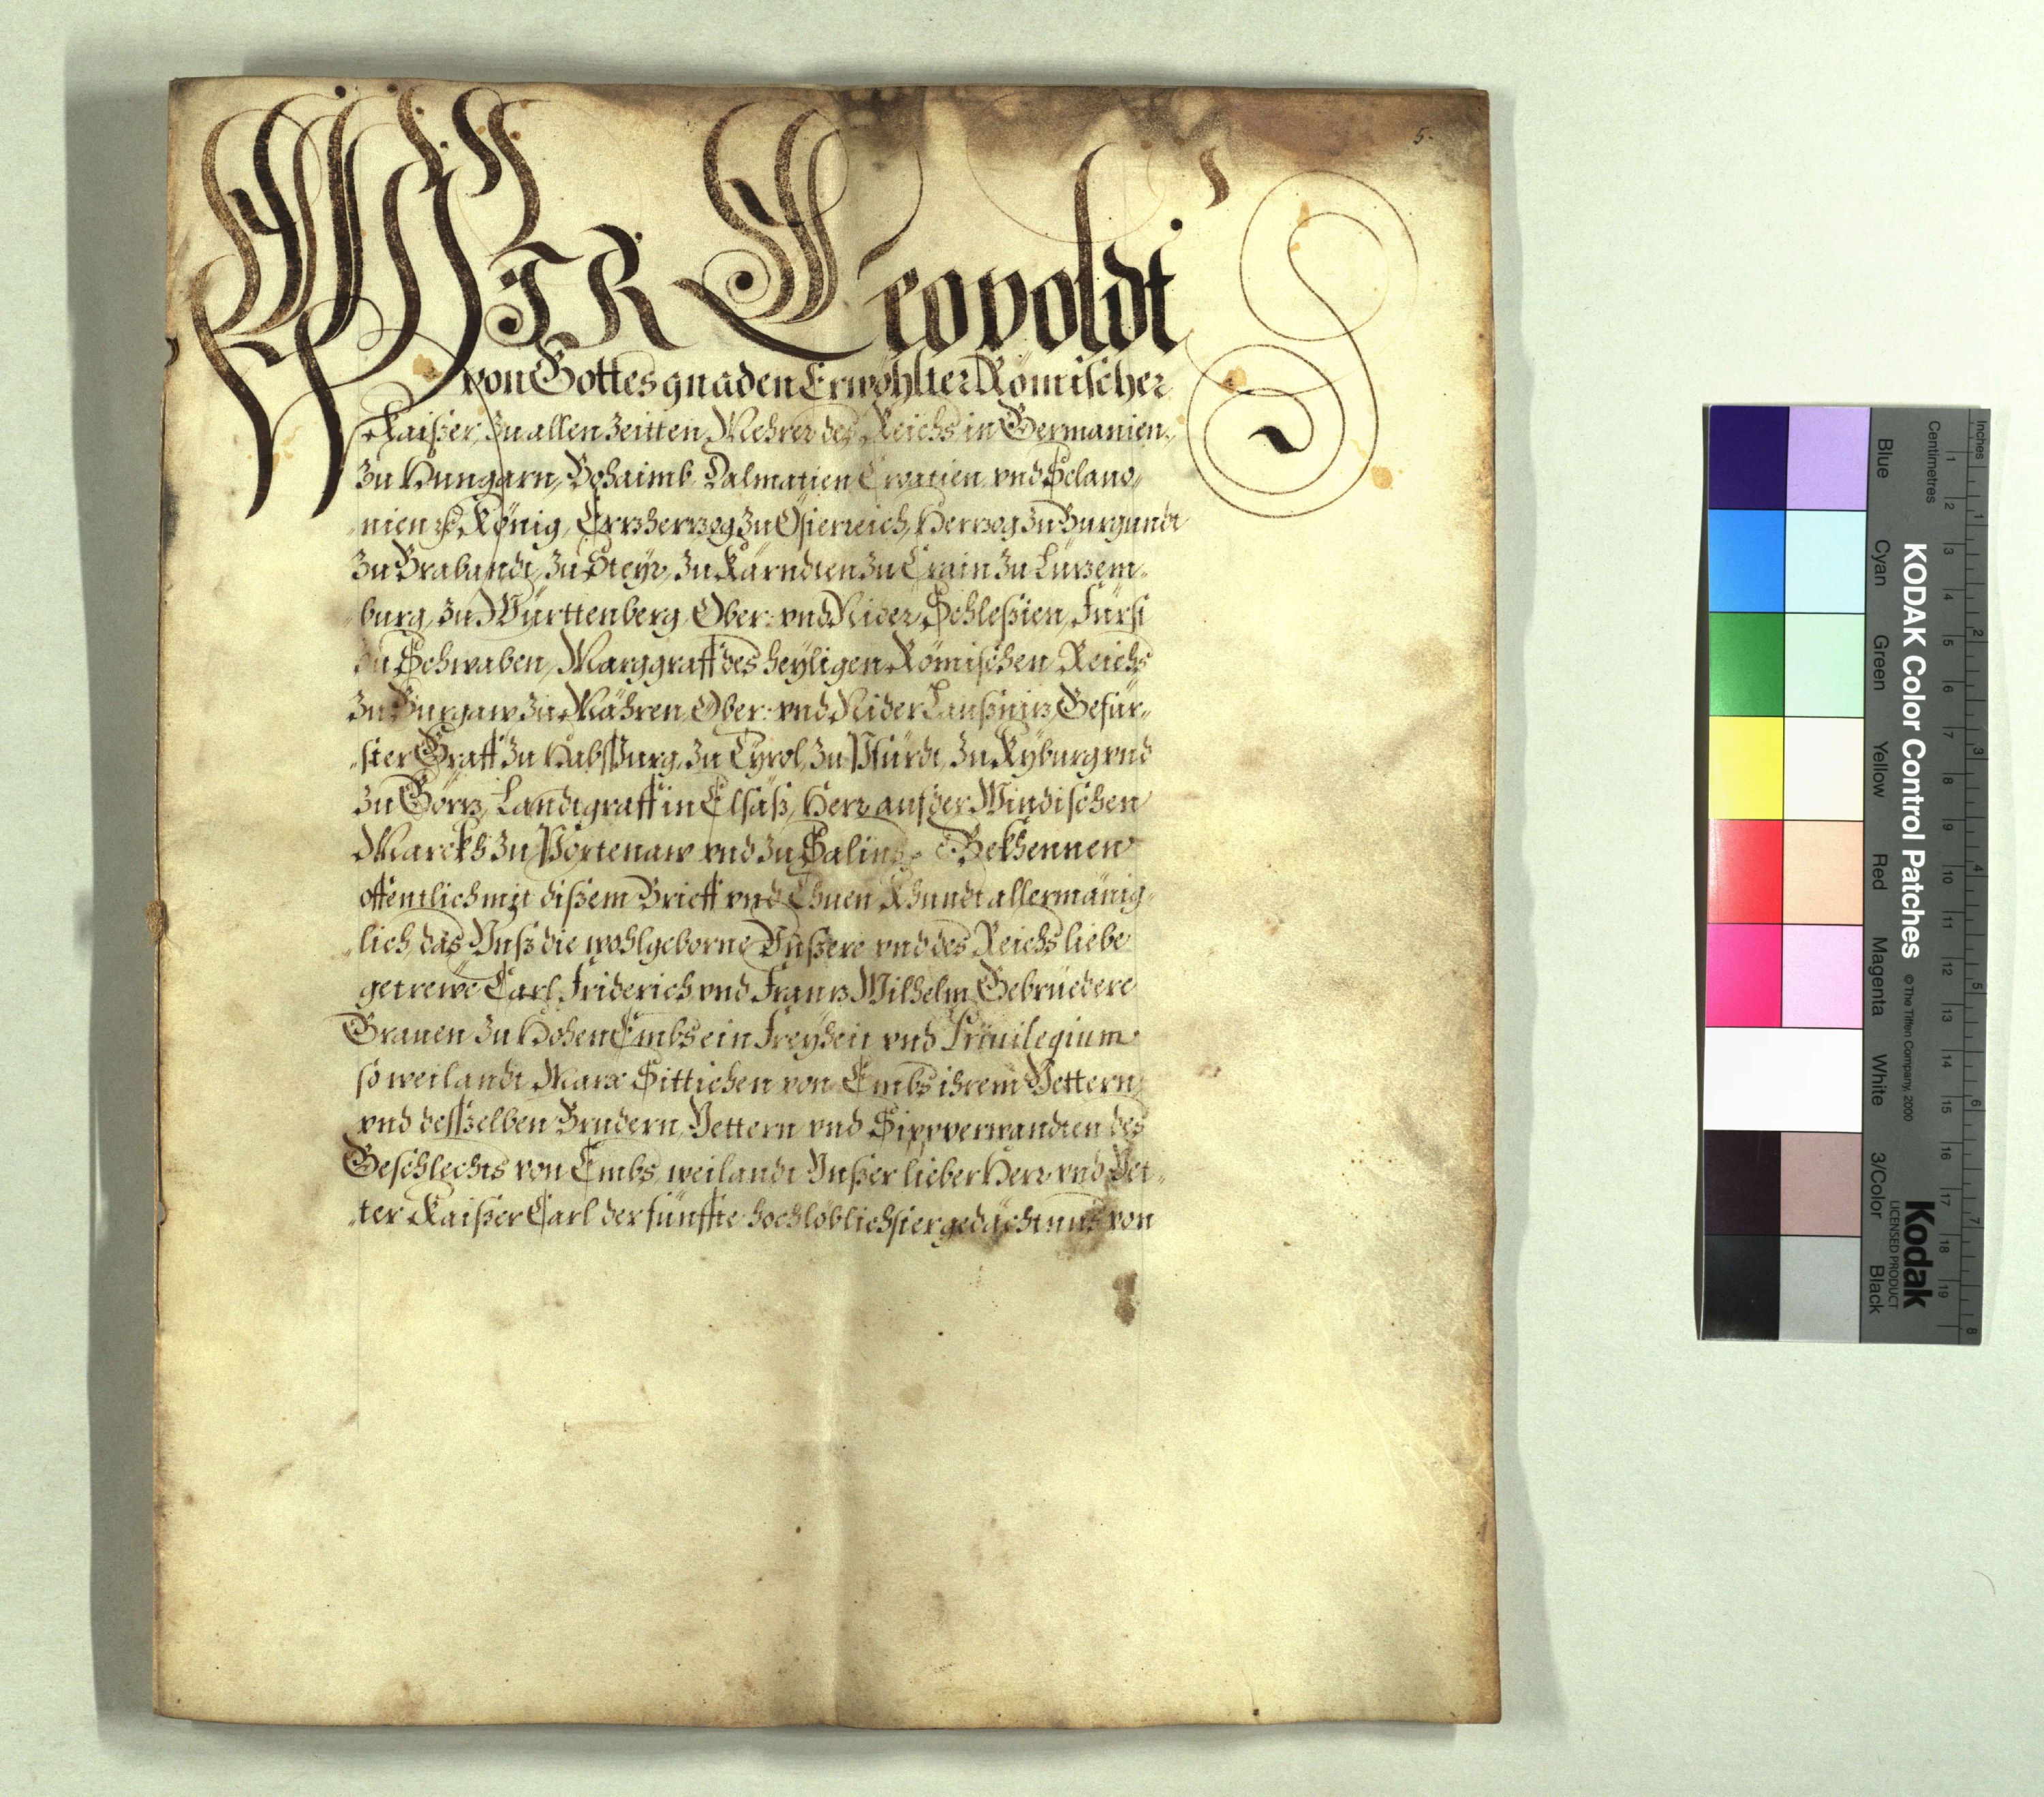 5.
WIR Leopoldt
von Gottes gnaden Erwöhlter Römischer
Kaißer, zu allen Zeitten Mehrer des Reichs in Germanien,
zu Hungarn, Bohaimb, Dalmatien Croatien vnd Sclavo„
„nien ꝛc. König, Ertzhertzog zu Össterreich, Hertzog zu Burgundt
zu Brabandt, zu Steyr, zu Kärndten zu Crain zu Lützem„
„burg, zu Württenberg, Ober: vnd Nider Schleßien, Fürst
zu Schwaben, Marggraff des heyligen Römischen Reichs
zu Burgaw zu Mähren, Ober: vnd Nider Laußnitz, Gefür„
„ster Graff zu Habsspurg, zu Tyrol, zu Pfürdt, zu Kyburg vnd
zu Görtz, Landtgraff in Elsäß, Herr auf der Windischen
Marckh zu Portenaw vnd zu Salins Bekhennen
offentlich mit dißem Brieff vnd Thuen Khundt allermänig„
„lich, das Vnß die wohlgeborne Vnßere vnd des Reichs liebe
getrewe Carl Friderich vnd Frantz Wilhelm Gebrüedere
Grauen zu HohenEmbs ein Freyheit vnd Priuilegium
so weilandt Marx Sittichen von Embs ihrem Vettern,
vnd desßelben Brudern, Vettern vnd Sippverwandten des
Geschlechts von Embs, weilandt Vnßer lieber Herr vnd Vet„
„ter Kaißer Carl der fünffte hochlöblichster gedächtnus von
Inches
Centimetres
1 2 3 4 5 6 7 8 9 10 11 12 13 14 15 16 17 18 19
1 2 3 4 5 6 7 8
KODAK Color Control Patches
© The Tiffen Company, 2000
Kodak
LICENSED PRODUCT
Blue Cyan Green Yellow Red Magenta White 3/Color Black